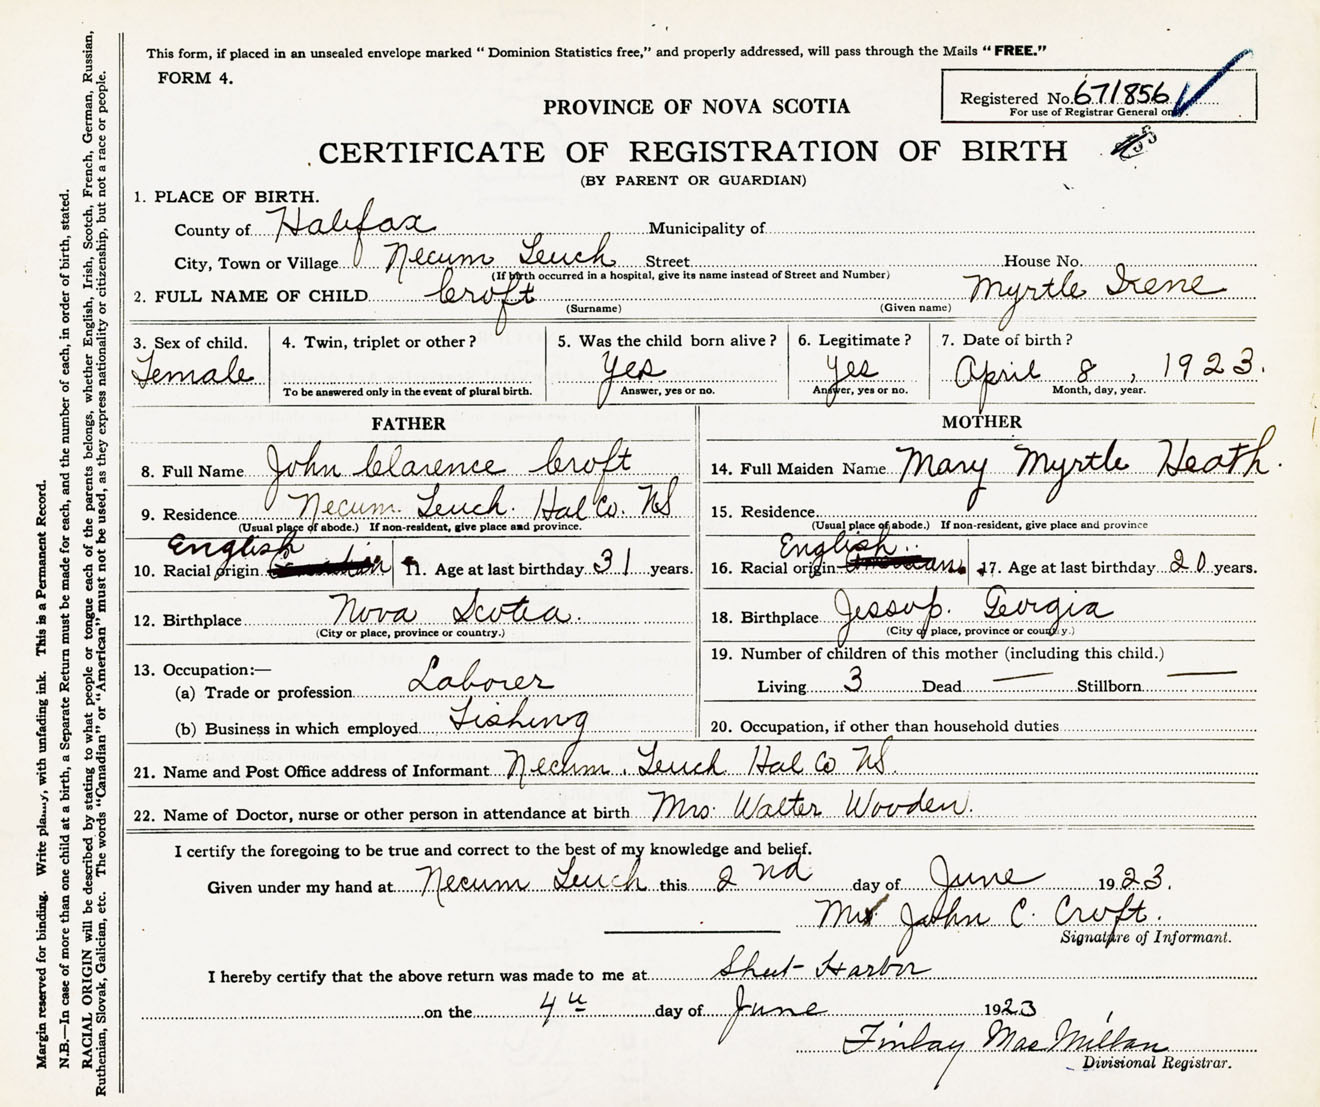 This form, if placed in an unsealed envelope marked " Dominion Statistics free," and properly addressed, will pass through the Mails "FREE."
FORM 4.
Registered No. 671856
For use of Registrar General only.
PROVINCE OF NOVA SCOTIA
CERTIFICATE OF REGISTRATION OF BIRTH
(BY PARENT OR GUARDIAN)
1. PLACE OF BIRTH.
County of Halifax Municipality of
City, Town or Village Necum Teuch Street House No.
(If birth occurred in a hospital, give its name instead of Street and Number)
2. FULL NAME OF CHILD Croft Myrtle Irene
(Surname) (Given name)
3. Sex of child. 4. Twin, triplet or other ? 5. Was the child born alive ? 6. Legitimate ? 7. Date of birth ?
Female Yes Yes April 8, 1923.
To be answered only in the event of plural birth. Answer, yes or no. Answer, yes or no. Month, day, year.
FATHER
8. Full Name John Clarence Croft
9. Residence Necum Teuch. Hal Co. NS
(Usual place of abode.) If non-resident, give place and province.
English
10. Racial origin 11. Age at last birthday 31 years.
12. Birthplace Nova Scotia.
(City or place, province or country.)
13. Occupation:—
(a) Trade or profession Laborer
(b) Business in which employed Fishing
MOTHER
14. Full Maiden Name Mary Myrtle Heath.
15. Residence
(Usual place of abode.) If non-resident, give place and province
English
16. Racial origin 17. Age at last birthday 20 years.
18. Birthplace Jessup. Georgia
(City or place, province or country.)
19. Number of children of this mother (including this child.)
Living 3 Dead — Stillborn —
20. Occupation, if other than household duties
21. Name and Post Office address of Informant Necum Teuch Hal Co NS.
22. Name of Doctor, nurse or other person in attendance at birth Mrs Walter Wooden.
I certify the foregoing to be true and correct to the best of my knowledge and belief.
Given under my hand at Necum Teuch this 2nd day of June 1923.
John C. Croft.
Signature of Informant.
I hereby certify that the above return was made to me at Sheet Harbor
on the 4 day of June 1923
Finlay MacMillan
Divisional Registrar.
Margin reserved for binding. Write plainly, with unfading ink. This is a Permanent Record.
N.B.—In case of more than one child at a birth, a Separate Return must be made for each, and the number of each, in order of birth, stated.
RACIAL ORIGIN will be described by stating to what people or tongue each of the parents belongs, whether English, Irish, Scotch, French, German, Russian,
Ruthenian, Slovak, Galician, etc. The words "Canadian" or "American" must not be used, as they express nationality or citizenship, but not a race or people.